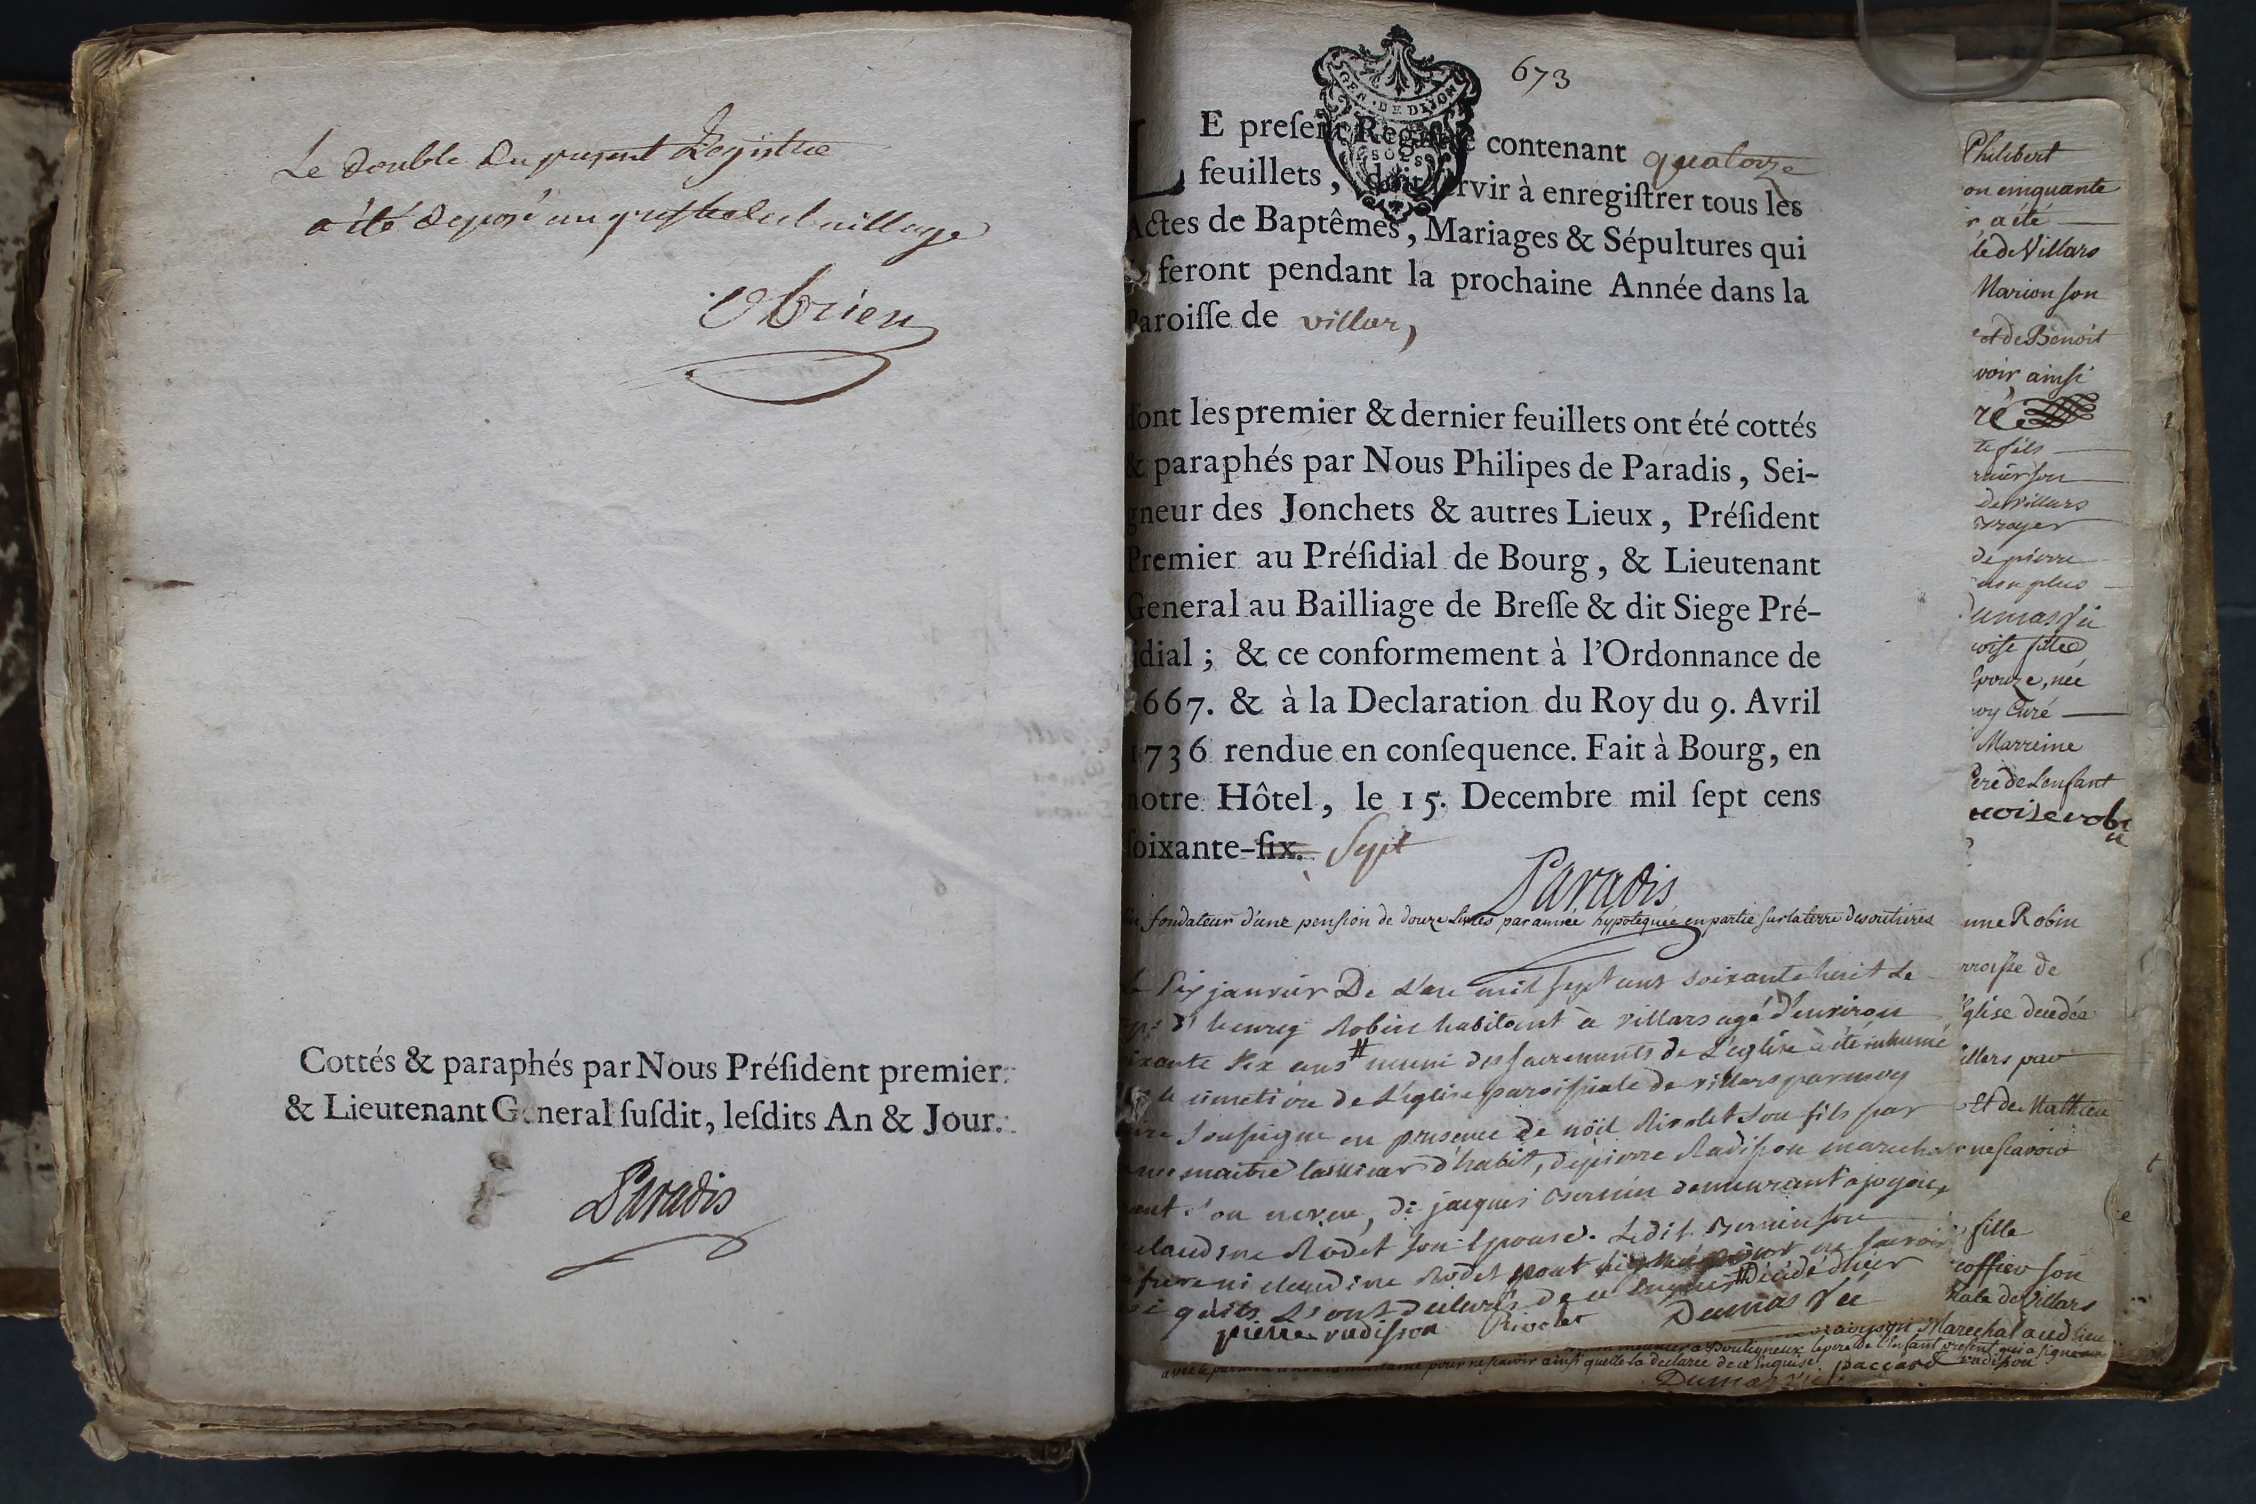 Le double du present Registre
a été deposé au greffe du bailliage
Cottés & paraphés par Nous Préſident premier
& Lieutenant General ſuſdit, leſdits An & Jour.
Paradis
673
GEN. DE DIJON
LE preſent Regiſtre contenant quatorze
feuillets, doit ſervir à enregiſtrer tous les
Actes de Baptêmes, Mariages & Sépultures qui
ſe feront pendant la prochaine Année dans la
Paroiſſe de villar,
dont les premier & dernier feuillets ont été cottés
& paraphés par Nous Philipes de Paradis, Sei-
gneur des Jonchets & autres Lieux, Préſident
Premier au Préſidial de Bourg, & Lieutenant
General au Bailliage de Breſſe & dit Siege Pré-
ſidial; & ce conformement à l'Ordonnance de
1667. & à la Declaration du Roy du 9. Avril
1736 rendue en conſequence. Fait à Bourg, en
notre Hôtel, le 15. Decembre mil ſept cens
ſoixante-ſix. Sept
Paradis
fondateur d'une pension de douze livres par année hypotequée en partie sur la terre des outieres
Le six janvier De L'an mil sept cent soixante huit Le
henry Robin habitant à villars agé d'environ
soixante six ans # muni des sacrements de L'eglise à été inhumé
le cimetiere de L'eglise paroissiale de villars par moy
soussigné en presence de noël Rivolet son fils par
maitre tailleur d'habit, de pierre Radisson marechal
son neveu, de jacques Bernin demeurant a joyeux
claudine Rodet son epouse. Ledit Bernin son
frere ni claudine Rodet pour ne savoir
qu'ils L'ont declarés de ce enquis # décédé hier
pierre radisson Rivolet Dumas Vic
Philibert
on cinquante
r a été
le de Villars
Marion son
et de Benoit
voir ainsi
ré
te fils
son
de villars
de pierre
non plus
Dumas Vic
oise fille
epouze, née
oy Curé
Marreine
Pere de L'enfant
coise robin
une Robin
rroisse de
Eglise dud
illars par
et de Mathieu
ne savoir
fille
coffier son
iale de Villars
Marechal aud lieu
meunier a Bouligneux le pere de l'enfant present qui a signé
pour ne savoir ainsi quelle la declaree de ce enquise paccard radisson
Dumas Vic